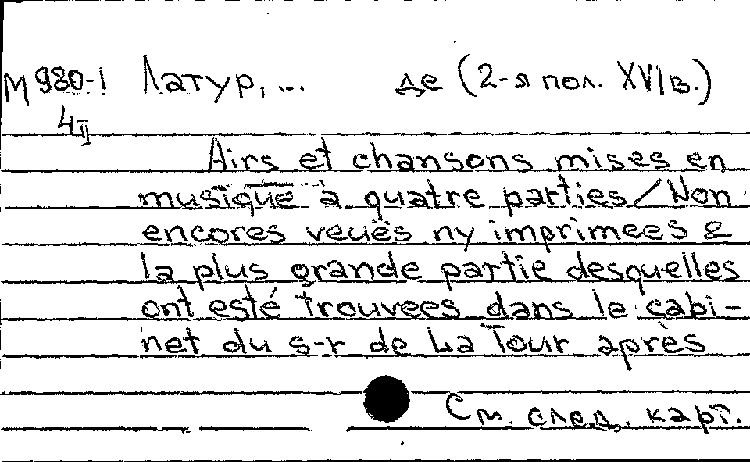 М 980-1 Латур, ... де (2-я пол. XVI в.)
4 II
Airs et chansons mises en
musique a quatre parties / Non
encores veuës ny imprimees &
la plus grande partie desquelles
ont esté trouvees dans le cabi-
net du s-r de La Tour après
См. след. карт.